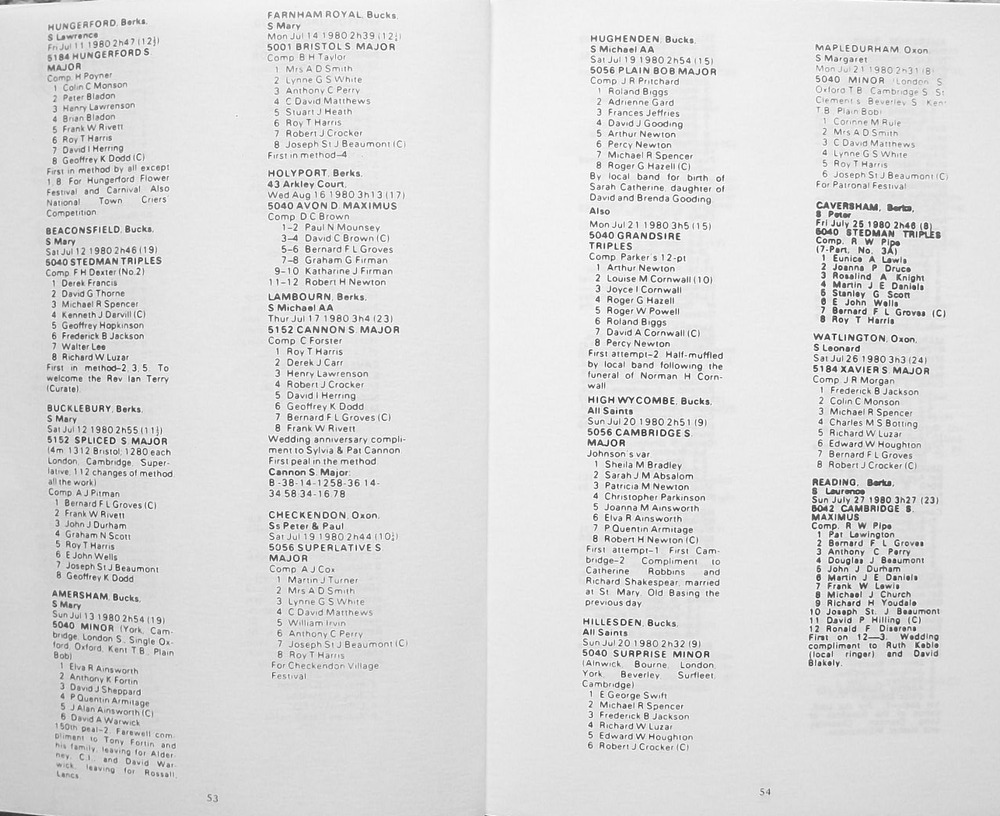 HUNGERFORD, Berks.
S Lawrence
Fri Jul 11 1980 2h47 (12½)
5184 HUNGERFORD S.
MAJOR
Comp. H Poyner
1 Colin C Monson
2 Peter Bladon
3 Henry Lawrenson
4 Brian Bladon
5 Frank W Rivett
6 Roy T Harris
7 David I Herring
8 Geoffrey K Dodd (C)
First in method by all except
1, 8. For Hungerford Flower
Festival and Carnival. Also
National Town Criers'
Competition
BEACONSFIELD, Bucks.
S Mary
Sat Jul 12 1980 2h46 (19)
5040 STEDMAN TRIPLES
Comp. F H Dexter (No.2)
1 Derek Francis
2 David G Thorne
3 Michael R Spencer
4 Kenneth J Darvill (C)
5 Geoffrey Hopkinson
6 Frederick B Jackson
7 Walter Lee
8 Richard W Luzar
First in method-2, 3, 5. To
welcome the Rev Ian Terry
(Curate).
BUCKLEBURY, Berks.
S Mary
Sat Jul 12 1980 2h55 (11½)
5152 SPLICED S. MAJOR
(4m. 1312 Bristol, 1280 each
London, Cambridge, Super-
lative, 112 changes of method,
all the work)
Comp. A J Pitman
1 Bernard F L Groves (C)
2 Frank W Rivett
3 John J Durham
4 Graham N Scott
5 Roy T Harris
6 E John Wells
7 Joseph St J Beaumont
8 Geoffrey K Dodd
AMERSHAM, Bucks.
S Mary
Sun Jul 13 1980 2h54 (19)
5040 MINOR (York, Cam-
bridge, London S., Single Ox-
ford, Oxford, Kent T.B., Plain
Bob)
1 Elva R Ainsworth
2 Anthony K Fortin
3 David J Sheppard
4 P Quentin Armitage
5 J Alan Ainsworth (C)
6 David A Warwick
150th peal-2. Farewell com-
pliment to Tony Fortin and
his family, leaving for Alder-
ney, C.I., and David War-
wick, leaving for Rossall,
Lancs.
53
FARNHAM ROYAL, Bucks.
S Mary
Mon Jul 14 1980 2h39 (12½)
5001 BRISTOL S. MAJOR
Comp. B H Taylor
1 Mrs A D Smith
2 Lynne G S White
3 Anthony C Perry
4 C David Matthews
5 Stuart J Heath
6 Roy T Harris
7 Robert J Crocker
8 Joseph St J Beaumont (C)
First in method-4
HOLYPORT, Berks.
43 Arkley Court.
Wed Aug 16 1980 3h13 (17)
5040 AVON D. MAXIMUS
Comp. D C Brown
1-2 Paul N Mounsey
3-4 David C Brown (C)
5-6 Bernard F L Groves
7-8 Graham G Firman
9-10 Katharine J Firman
11-12 Robert H Newton
LAMBOURN, Berks.
S Michael AA
Thur Jul 17 1980 3h4 (23)
5152 CANNON S. MAJOR
Comp. C Forster
1 Roy T Harris
2 Derek J Carr
3 Henry Lawrenson
4 Robert J Crocker
5 David I Herring
6 Geoffrey K Dodd
7 Bernard F L Groves (C)
8 Frank W Rivett
Wedding anniversary compli-
ment to Sylvia & Pat Cannon.
First peal in the method.
Cannon S. Major:
B -38-14-1258-36 14-
34.58 34-16.78
CHECKENDON, Oxon.
Ss Peter & Paul
Sat Jul 19 1980 2h44 (10½)
5056 SUPERLATIVE S.
MAJOR
Comp. A J Cox
1 Martin J Turner
2 Mrs A D Smith
3 Lynne G S White
4 C David Matthews
5 William Irvin
6 Anthony C Perry
7 Joseph St J Beaumont (C)
8 Roy T Harris
For Checkendon Village
Festival
HUGHENDEN, Bucks.
S Michael AA
Sat Jul 19 1980 2h54 (15)
5056 PLAIN BOB MAJOR
Comp. J R Pritchard
1 Roland Biggs
2 Adrienne Gard
3 Frances Jeffries
4 David J Gooding
5 Arthur Newton
6 Percy Newton
7 Michael R Spencer
8 Roger G Hazell (C)
By local band for birth of
Sarah Catherine, daughter of
David and Brenda Gooding.
Also
Mon Jul 21 1980 3h5 (15)
5040 GRANDSIRE
TRIPLES
Comp. Parker's 12-pt
1 Arthur Newton
2 Louise M Cornwall (10)
3 Joyce I Cornwall
4 Roger G Hazell
5 Roger W Powell
6 Roland Biggs
7 David A Cornwall (C)
8 Percy Newton
First attempt-2. Half-muffled
by local band following the
funeral of Norman H Corn-
wall
HIGH WYCOMBE, Bucks.
All Saints
Sun Jul 20 1980 2h51 (9)
5056 CAMBRIDGE S.
MAJOR
Johnson's var.
1 Sheila M Bradley
2 Sarah J M Absalom
3 Patricia M Newton
4 Christopher Parkinson
5 Joanna M Ainsworth
6 Elva R Ainsworth
7 P Quentin Armitage
8 Robert H Newton (C)
First attempt-1. First Cam-
bridge-2. Compliment to
Catherine Robbins and
Richard Shakespear, married
at St. Mary, Old Basing the
previous day
HILLESDEN, Bucks.
All Saints
Sun Jul 20 1980 2h32 (9)
5040 SURPRISE MINOR
(Alnwick, Bourne, London,
York, Beverley, Surfleet,
Cambridge)
1 E George Swift
2 Michael R Spencer
3 Frederick B Jackson
4 Richard W Luzar
5 Edward W Houghton
6 Robert J Crocker (C)
54
MAPLEDURHAM, Oxon.
S Margaret
Mon Jul 21 1980 2h31 (8)
5040 MINOR (London S.,
Oxford T.B., Cambridge S., St.
Clement's, Beverley S., Kent
T.B., Plain Bob)
1 Corinne M Rule
2 Mrs A D Smith
3 C David Matthews
4 Lynne G S White
5 Roy T Harris
6 Joseph St J Beaumont (C)
For Patronal Festival
CAVERSHAM, Berks,
S Peter
Fri July 25 1980 2h46 (8)
5040 STEDMAN TRIPLES
Comp. R W Pipe
(7-Part, No. 3A)
1 Eunice A Lewis
2 Joanna P Druce
3 Rosalind A Knight
4 Martin J E Daniels
5 Stanley G Scott
6 E John Wells
7 Bernard F L Groves (C)
8 Roy T Harris
WATLINGTON, Oxon.
S Leonard
Sat Jul 26 1980 3h3 (24)
5184 XAVIER S. MAJOR
Comp. J R Morgan
1 Frederick B Jackson
2 Colin C Monson
3 Michael R Spencer
4 Charles M S Botting
5 Richard W Luzar
6 Edward W Houghton
7 Bernard F L Groves
8 Robert J Crocker (C)
READING, Berks,
S Laurence
Sun July 27 1980 3h27 (23)
5042 CAMBRIDGE S.
MAXIMUS
Comp. R W Pipe
1 Pat Lewington
2 Bernard F L Groves
3 Anthony C Perry
4 Douglas J Beaumont
5 John J Durham
6 Martin J E Daniels
7 Frank W Lewis
8 Michael J Church
9 Richard H Youdale
10 Joseph St. J Beaumont
11 David P Hilling (C)
12 Ronald F Diserens
First on 12—3. Wedding
compliment to Ruth Keble
(local ringer) and David
Blakely.